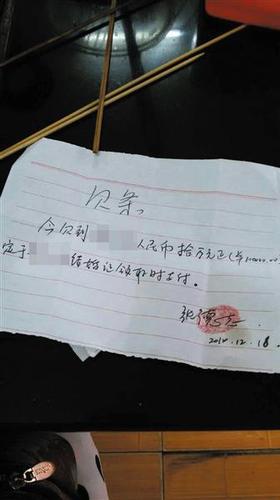 欠条。
今欠到 人民币拾万元正(¥100000.00
定于 结婚证领取时支付。
张德
2012.12.18.